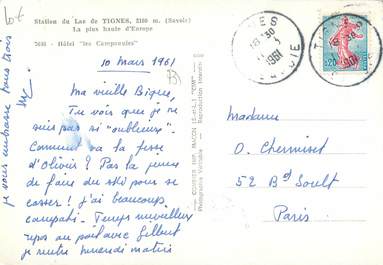 Station du Lac de TIGNES, 2100 m. (Savoie)
La plus haute d'Europe
7631 - Hôtel "les Campanules"
10 mars 1961
Ma vieille Bique,
Tu vois que je ne
suis pas si "oublieuse".
Comment va la fesse
d'Olivier ? Pas la peine
de faire du ski pour se
casser ! J'ai beaucoup
compati - Temps merveilleux
repos au poil avec Gilbert
je rentre mercredi matin
je vous embrasse tous trois
COMBIER IMP. MACON (S.-et-L.) "CIM"
Photographie Véritable - Reproduction interdite
TIGNES
18 H 30
1961
SAVOIE
TIGNES
18 H 30
1961
0,20
Madame
O. Chermiset
52 Bd Soult
Paris